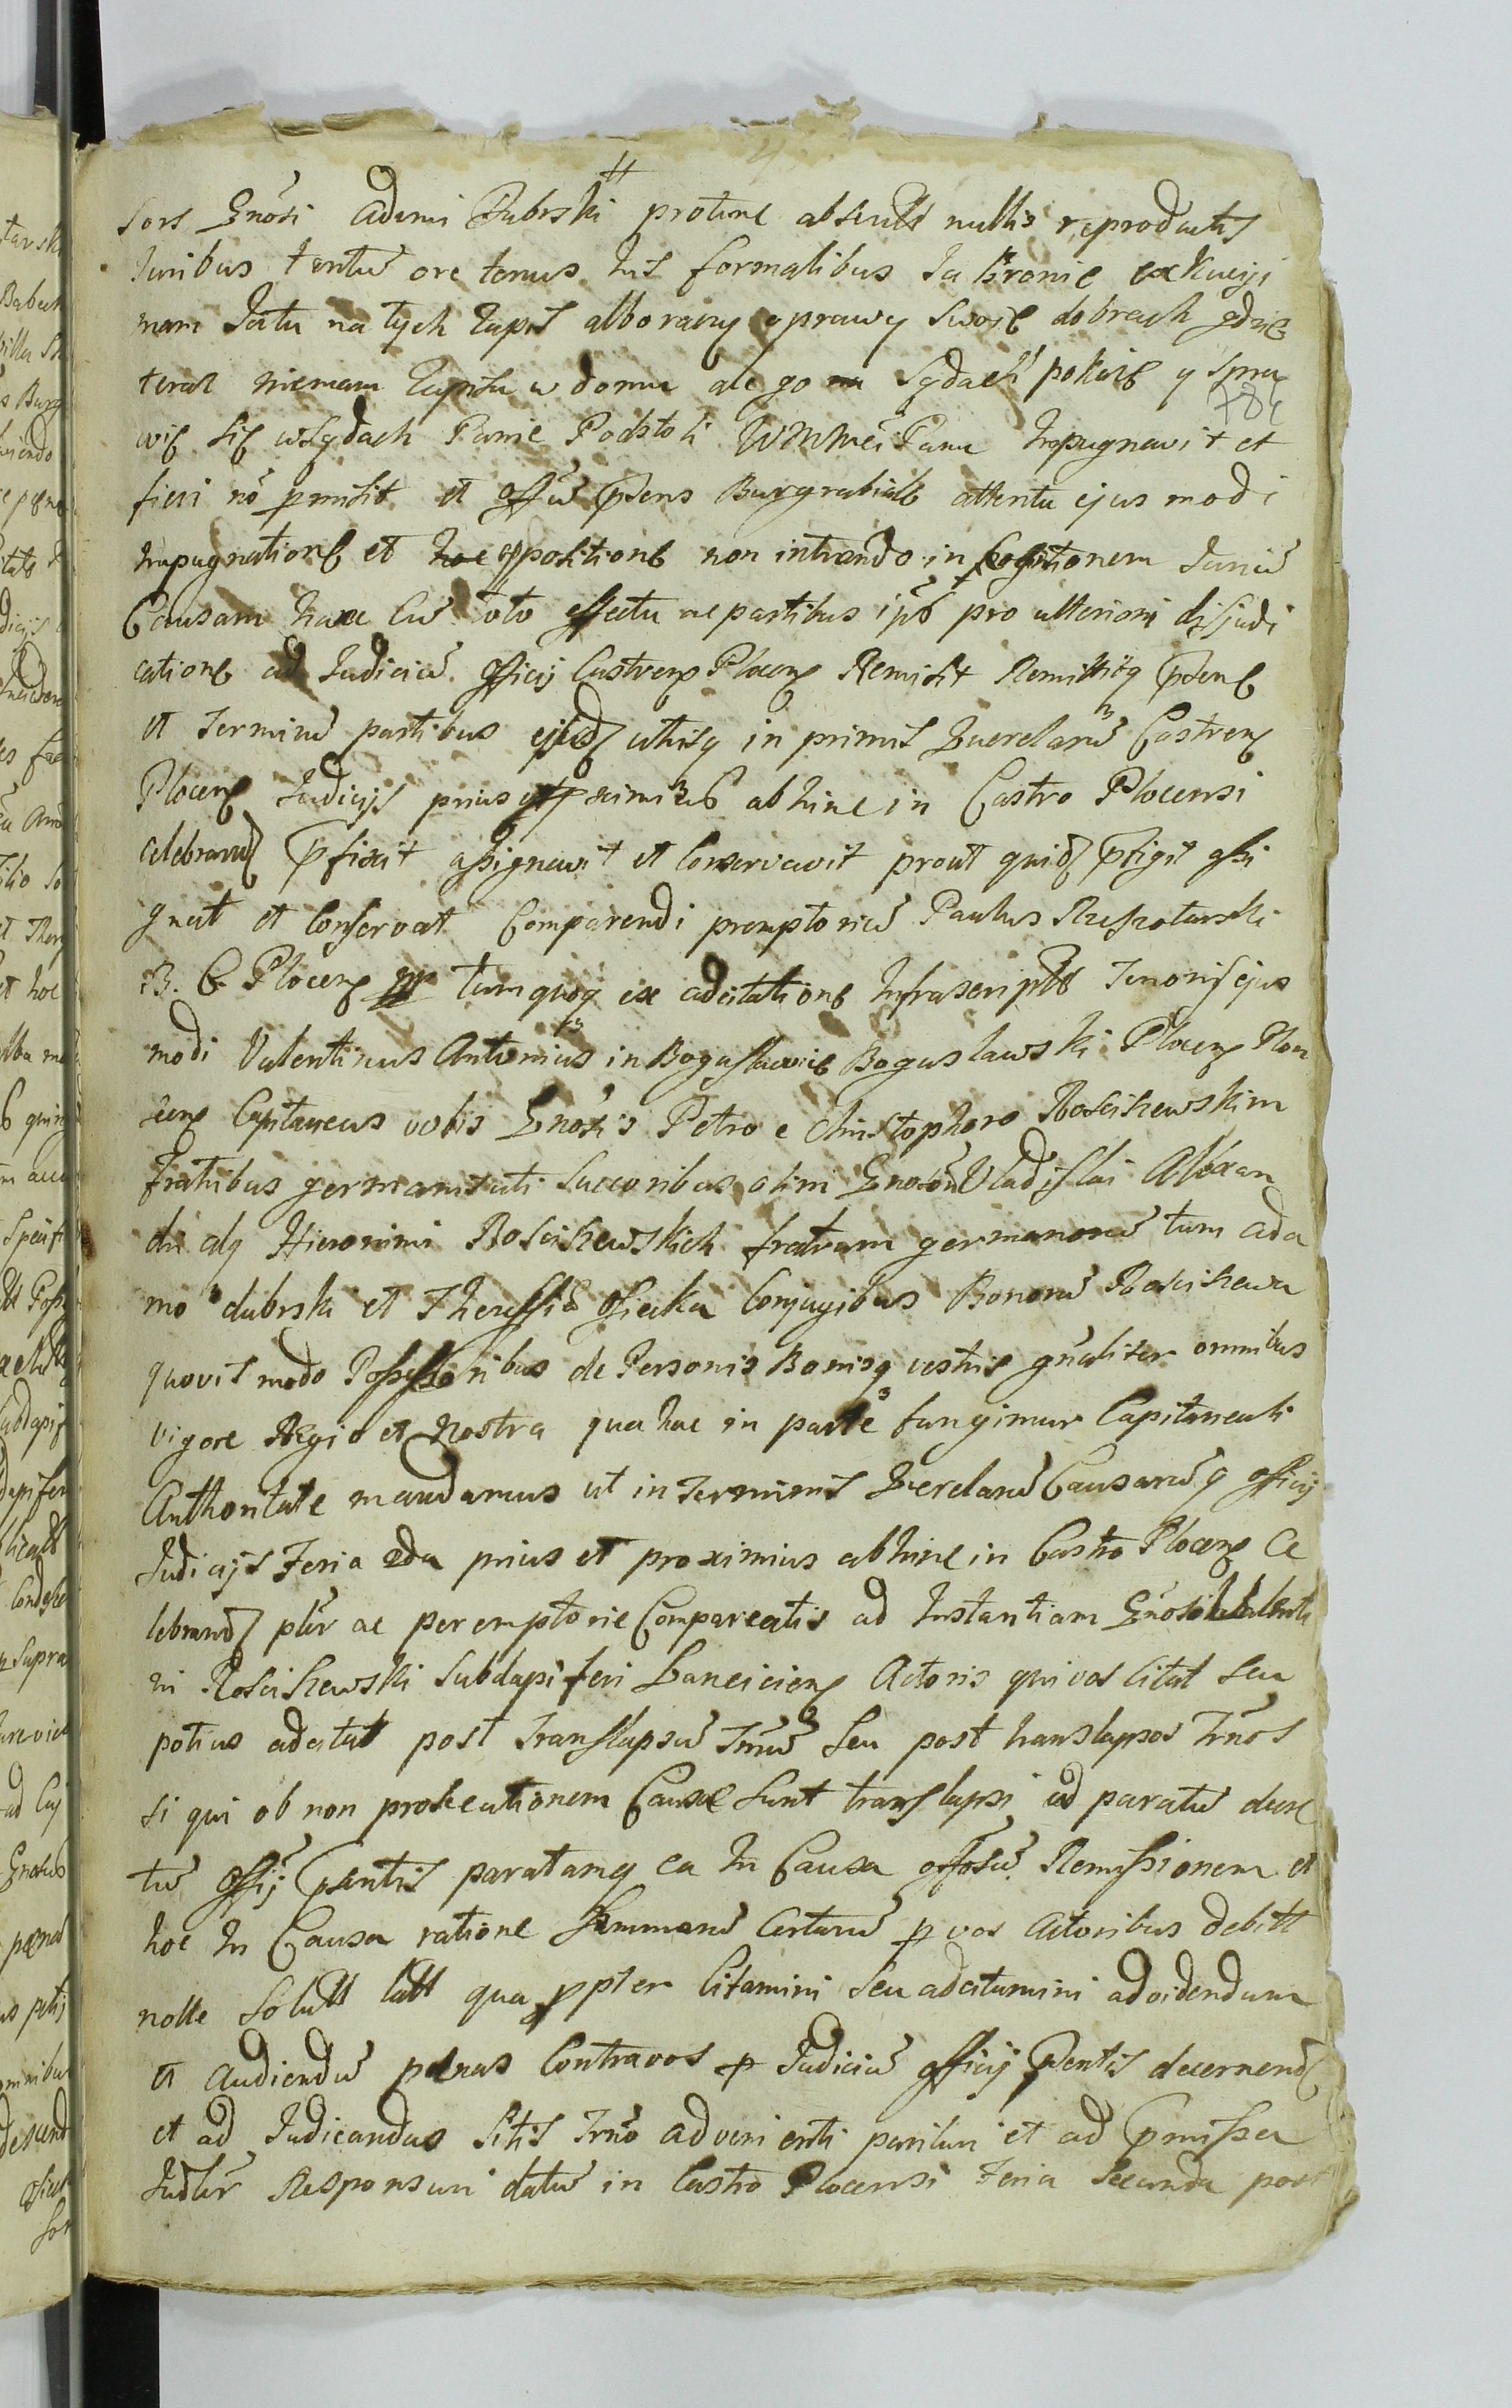 sors Gnosi Adami Dubrski protunc absentis nullis reproductis
Iuribus tentum ore tenus his formalibus Ia bronie exekucyi
mam Iatu na tych zapis alborainy oprawy swoie dobrach gdzie
teraz niemam zapisu w domu ale go na sądach pokaię y spra
784
wie się wsądach Panie Podstoli WMMci Panu Impugnavit et
fieri nõ pmisit et offũ pñs Burgrabiale attenta ejus modi
Impugnatione et hac oppositione non intrando in Cognitionem Iuriũ
Causam hanc cũ toto effectu ac partibus ipõ pro ulteriori disjudi
catione ad Iudiciũ Officij Castreñ Ploceñ Remisit Remittitq pñte
et Terminũ partibus ejusd utrisq in primis Querelarũ Castreñ
Ploceñ Iudicijs prius et proximius abhinc in Castro Plocensi
celebrand pfixit assignavit et Conservavit prout quid pfigit assi
gnat et Conservat Comparendi peremptoriũ Paulus Rzeszotarski
B. C. Ploceñ tum quoq ex adcitatione Infrascripta Tenoris ejus
modi Valentinus Antonius in Bogusławice Bogusławski Ploceñ Plon
sceñ Capitaneus vobis Gnosis Petro e Christophoro Rosciszewskim
Fratribus germanis uti Succoribus olim Gnosorũ Vladislai Alexan
dri alq Hieronimi Rosciszewskich fratrum germanorũ tum Ada
mo dubrski et Theressia Osiecka Conjugibus Bonorũ Rosciszewa
quovis modo Possessoribus de Personis Bonisq vestris gñaliter omnibus
vigore Regia et Nostra qua hac in parte fungimur Capitaneali
Authoritate mandamus ut in Terminis Querelarũ Causarũq officij
Iudicijs Feria 2da prius et proximius abhinc in Castro Ploceñ Ce
lebrand plir ac peremptorie Compareatis ad Instantiam Gnosi Valenti
ni Rosciszewski Subdapiferi Lanciciens Actoris qui vos Citat seu
potius adcitat post Translapsũ Tmũ seu post translapsos Trños
si qui ob non prosecutionem Causæ sunt translapsi ad paratũ decre
tũ offij pñtis paratamq ea In Causa Remissionem et
hoc In Causa ratione summarũ Certarũ p vos Actoribus debitt
nolle solutt qua ppter Citamini seu adcitamini advidendum
et Audiendũ pænas Contravos p Iudiciũ officij pñtis decernend
et ad Iudicandas Sitis Trño advenienti parituri et ad pmissa
Iudlir Responsuri datũ in Castro Plocensi Feria Secunda post